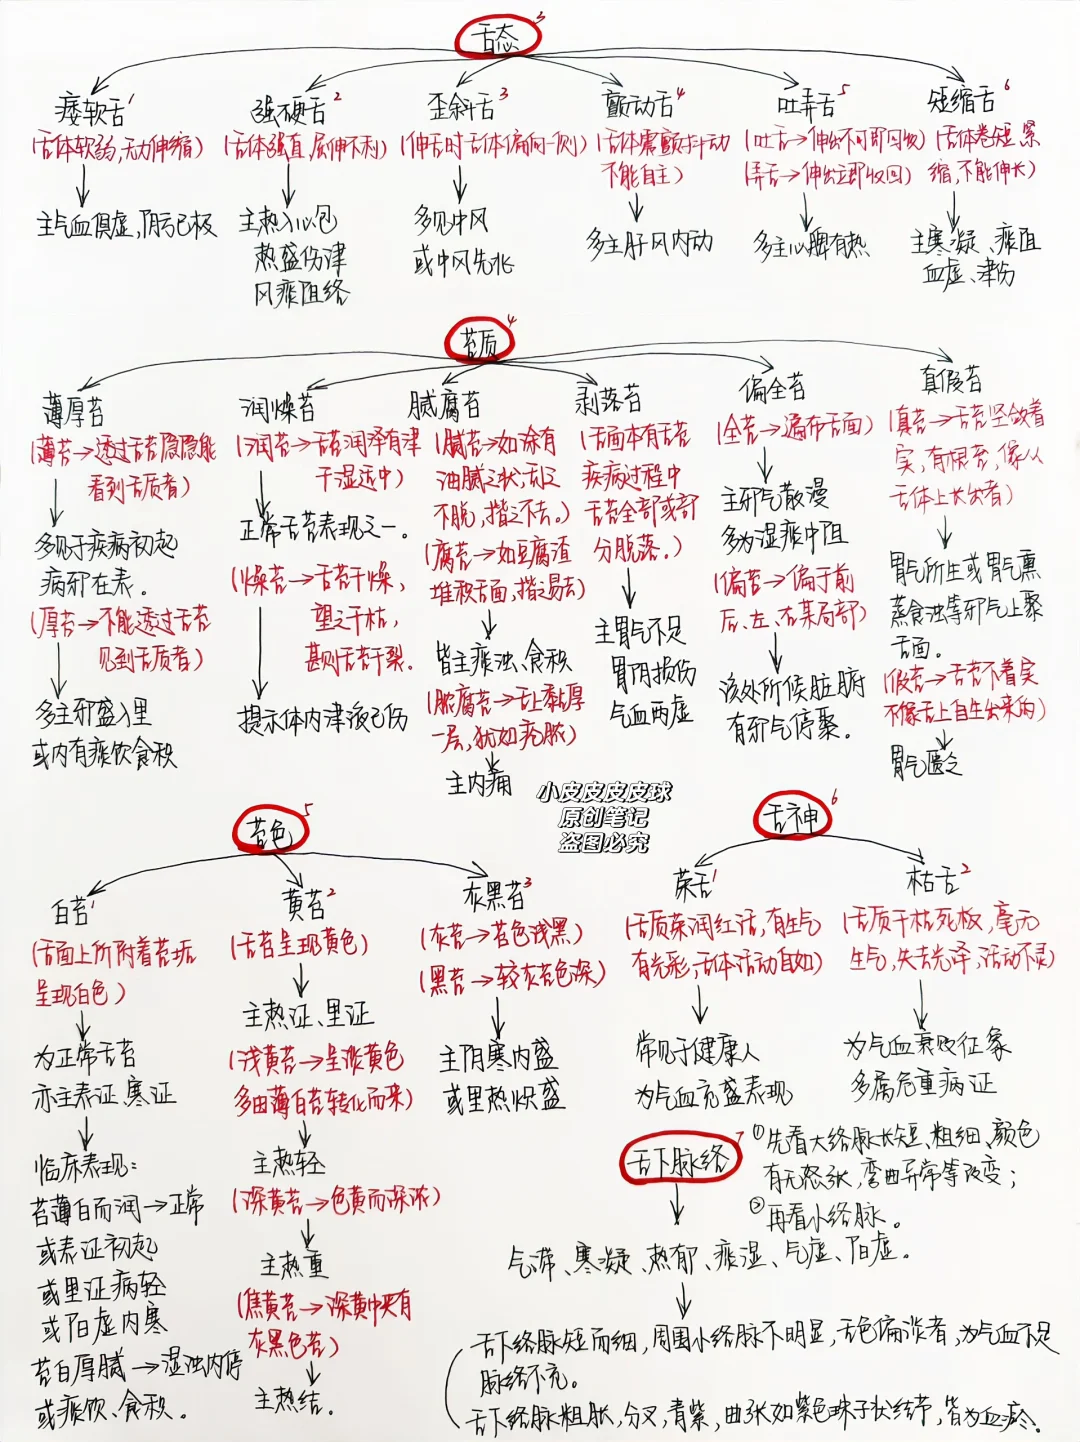 舌态 3
痿软舌 1
(舌体软弱,无力伸缩)
主气血俱虚,阴亏已极
强硬舌 2
(舌体强直,屈伸不利)
主热入心包
热盛伤津
风痰阻络
歪斜舌 3
(伸舌时舌体偏向一侧)
多见中风
或中风先兆
颤动舌 4
(舌体震颤抖动
不能自主)
多主肝风内动
吐弄舌 5
(吐舌→伸出不可即回收)
(弄舌→伸出立即收回)
多主心脾有热
短缩舌 6
(舌体卷短,紧
缩,不能伸长)
主寒凝、痰阻
血虚、津伤
苔质 4
薄厚苔
(薄苔→透过舌苔隐隐能
看到舌质者)
多见于疾病初起
病邪在表.
(厚苔→不能透过舌苔
见到舌质者)
多主邪盛入里
或内有痰饮食积
润燥苔
(润苔→舌苔润泽有津
干湿适中)
正常舌苔表现之一。
(燥苔→舌苔干燥,
望之干枯,
甚则舌苔干裂.
提示体内津液已伤
腻腐苔
(腻苔→如涂有
油腻之状,刮之
不脱,揩之不去。)
(腐苔→如豆腐渣
堆积舌面,揩之易去)
皆主痰浊、食积
(脓腐苔→舌上黏厚
一层,犹如疮脓)
主内痈
剥落苔
(舌面本有舌苔
疾病过程中
舌苔全部或部
分脱落。)
主胃气不足
胃阴损伤
气血两虚
偏全苔
(全苔→遍布舌面)
主邪气散漫
多为湿痰中阻
(偏苔→偏于前
后、左、右某局部)
该处所候脏腑
有邪气停聚.
真假苔
(真苔→舌苔坚敛着
实,有根苔,像从
舌体上长出者)
胃气所生或胃气熏
蒸食浊等邪气上聚
舌面.
(假苔→舌苔不着实
不像舌上自生出来的)
胃气匮乏
小皮皮皮皮球
原创笔记
盗图必究
苔色 5
白苔 1
(舌面上所附着苔垢
呈现白色)
为正常舌苔
亦主表证、寒证
临床表现:
苔薄白而润→正常
或表证初起
或里证病轻
或阳虚内寒
苔白厚腻→湿浊内停
或痰饮、食积.
黄苔 2
(舌苔呈现黄色)
主热证、里证
(浅黄苔→呈淡黄色
多由薄白苔转化而来)
主热轻
(深黄苔→色黄而深浓)
主热重
(焦黄苔→深黄中夹有
灰黑色苔)
主热结.
灰黑苔 3
(灰苔→苔色浅黑)
(黑苔→较灰苔色深)
主阴寒内盛
或里热炽盛
舌神 6
荣舌 1
(舌质荣润红活,有生气
有光彩,舌体活动自如)
常见于健康人
为气血充盛表现
枯舌 2
(舌质干枯死板,毫无
生气,失去光泽,活动不灵)
为气血衰败征象
多属危重病证
舌下脉络 7
①先看大络脉长短、粗细、颜色
有无怒张,弯曲异常等改变;
②再看小络脉。
气滞、寒凝、热郁、痰湿、气虚、阳虚.
舌下络脉短而细,周围小络脉不明显,舌色偏淡者,为气血不足
脉络不充。
舌下络脉粗胀,分叉,青紫,曲张如紫色珠子状结节,皆为血瘀.